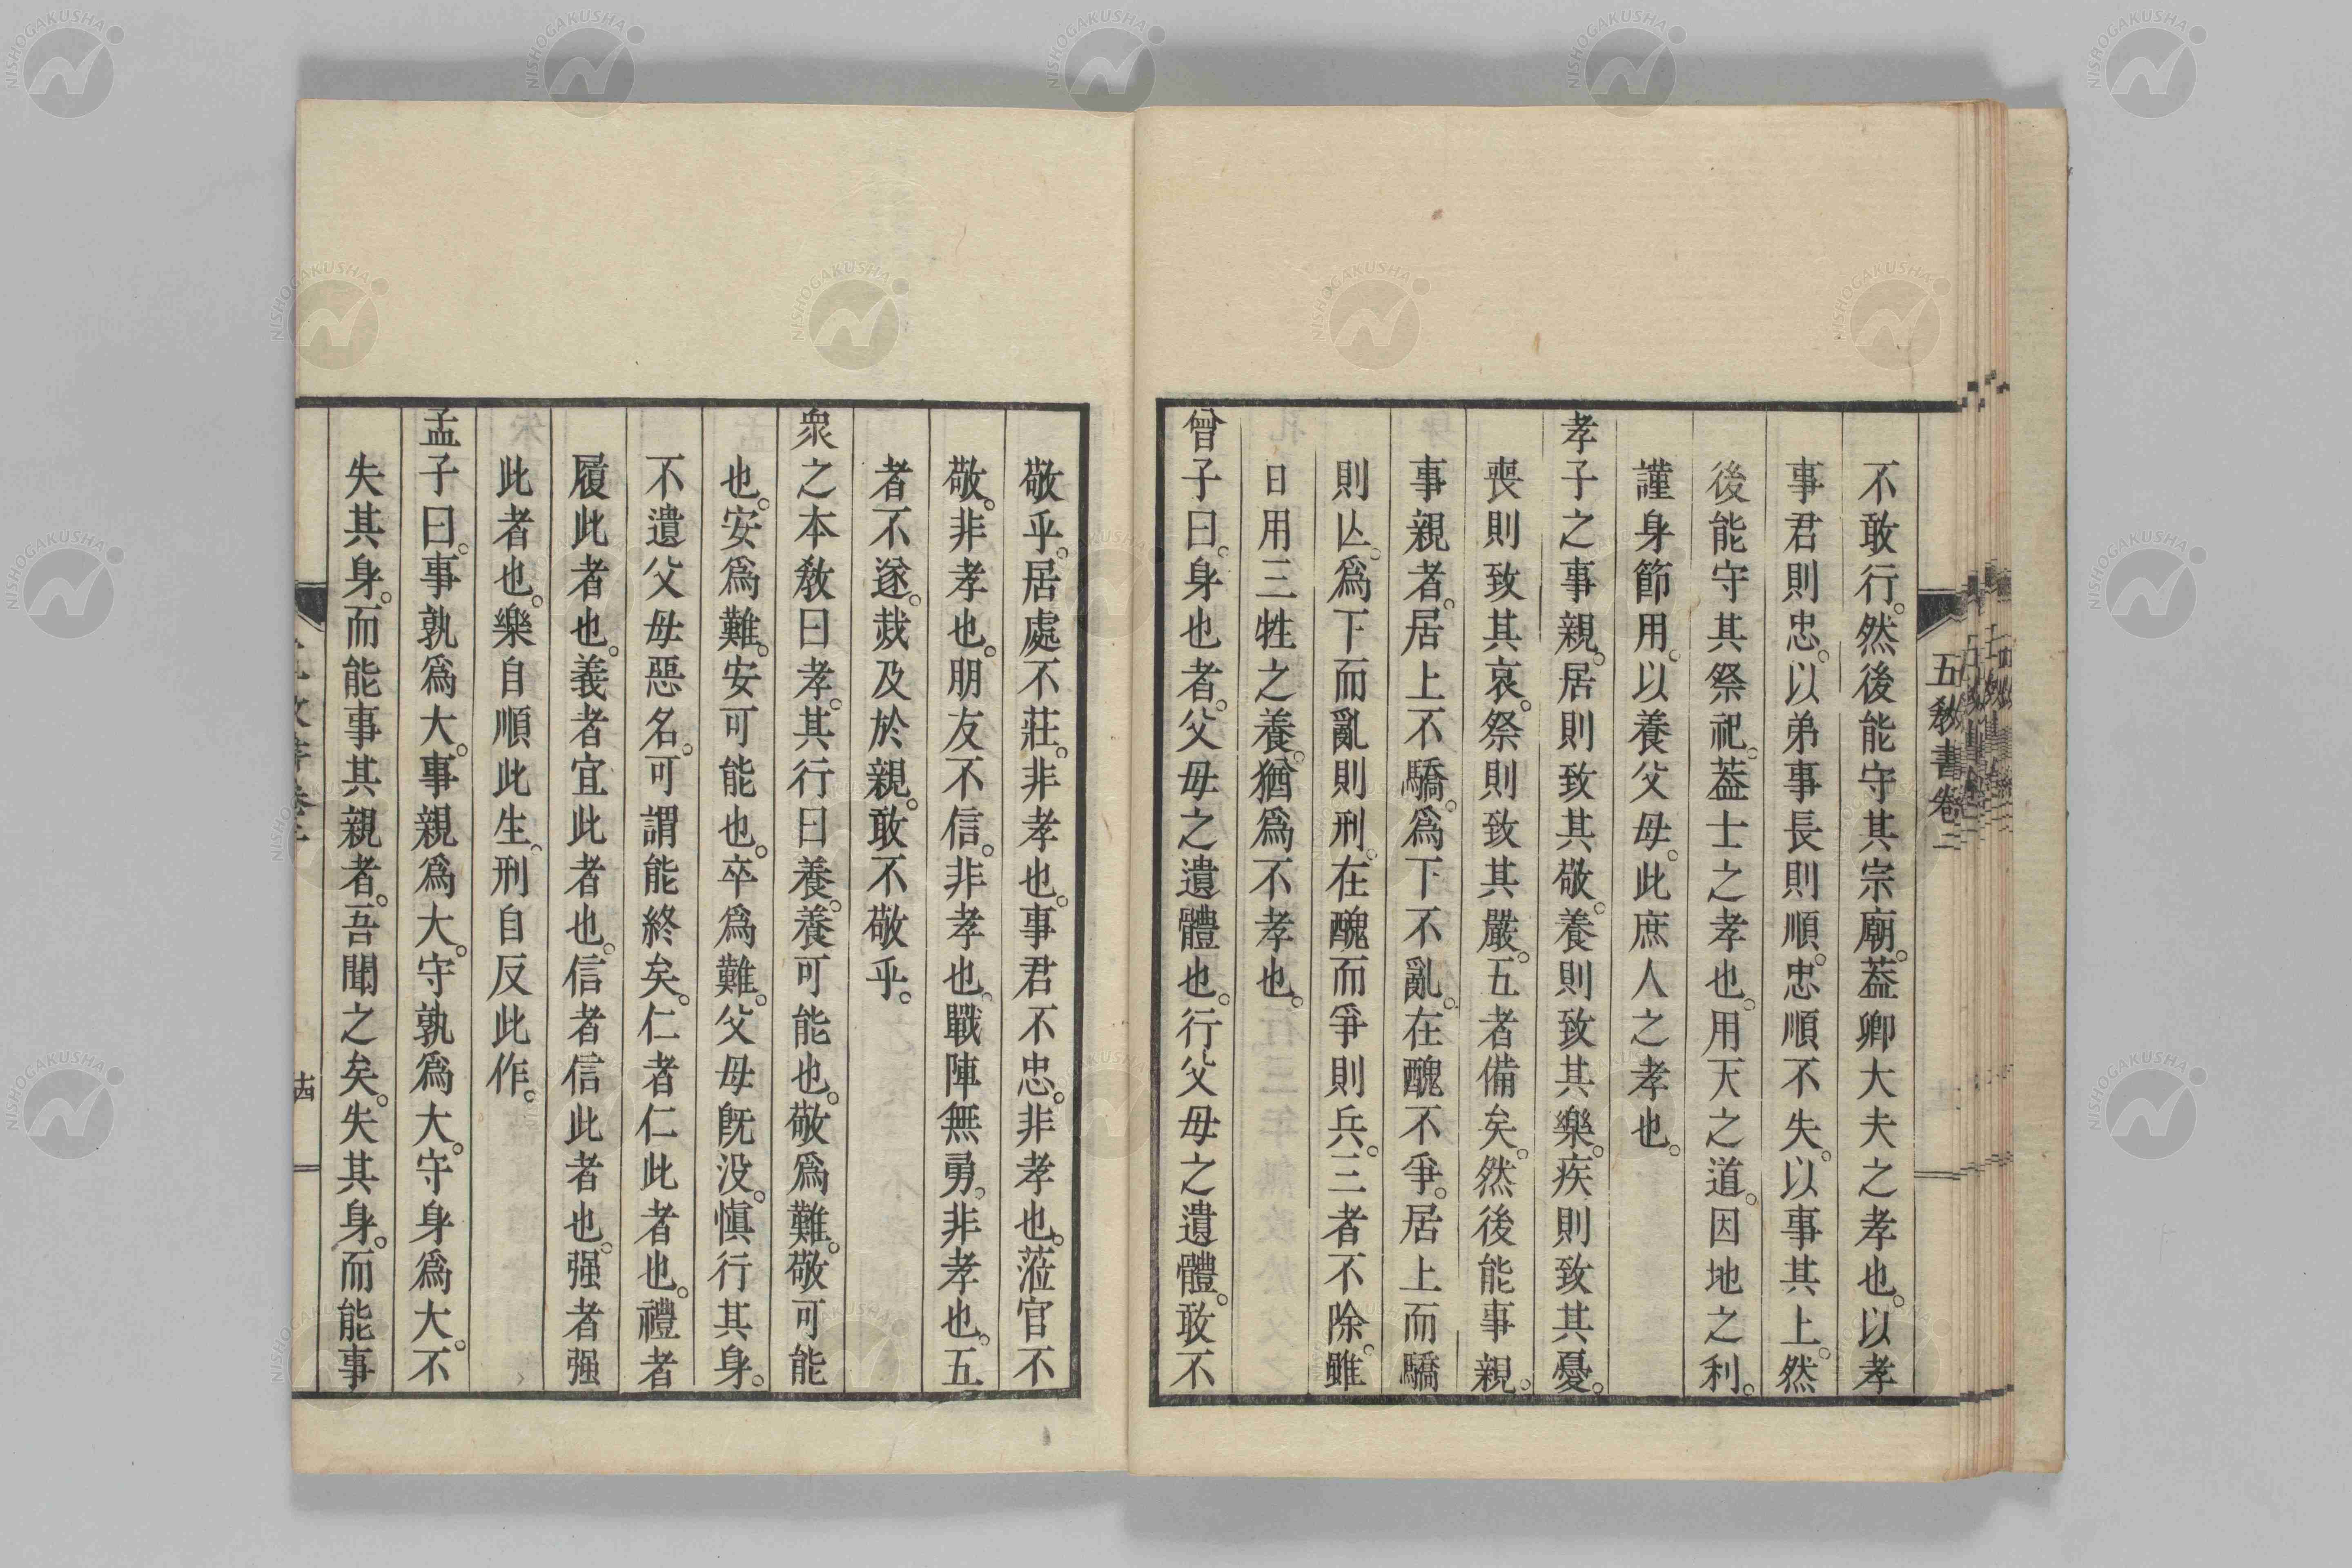 五教書卷二
不敢行。然後能守其宗廟。葢卿大夫之孝也。以孝
事君則忠。以弟事長則順。忠順不失。以事其上。然
後能守其祭祀。葢士之孝也。用天之道。因地之利。
謹身節用。以養父母。此庶人之孝也。
孝子之事親。居則致其敬。養則致其樂。疾則致其憂。
喪則致其哀。祭則致其嚴。五者備矣。然後能事親。
事親者。居上不驕。爲下不亂。在醜不爭。居上而驕
則亾。爲下而亂則刑。在醜而爭則兵。三者不除。雖
日用三牲之養。猶爲不孝也。
曾子曰。身也者。父母之遺體也。行父母之遺體。敢不
敬乎。居處不莊。非孝也。事君不忠。非孝也。蒞官不
敬。非孝也。朋友不信。非孝也。戰陣無勇。非孝也。五
者不遂。烖及於親。敢不敬乎。
衆之本教曰孝。其行曰養。養可能也。敬爲難。敬可能
也。安爲難。安可能也。卒爲難。父母旣没。愼行其身。
不遺父母惡名。可謂能終矣。仁者仁此者也。禮者
履此者也。義者宜此者也。信者信此者也。强者强
此者也。樂自順此生。刑自反此作。
孟子曰。事孰爲大。事親爲大。守孰爲大。守身爲大。不
失其身。而能事其親者。吾聞之矣。失其身。而能事
十四
NISHOGAKUSHA